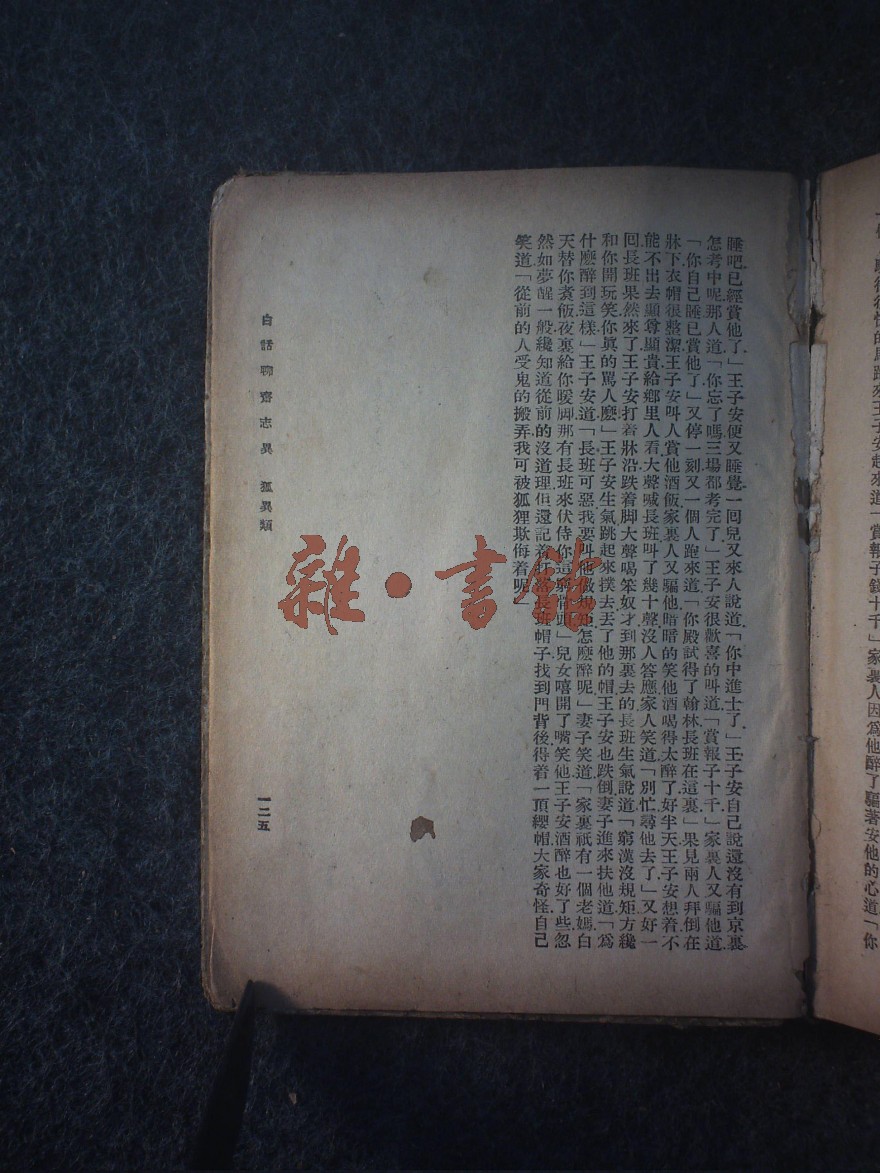 睡吧已經賞他了」王子安便又睡覺一回兒又來人說道「你中進士了」王子安自己說還沒有到京裏
怎考中呢那人道「你忘了嗎三場都考完了」王子安很歡喜的叫道「賞報子十千」家裏人又騙他道
「你自己睡已賞他了」又停一刻又一個人跑來道「你殿試得了翰林長班在這裏」果見兩人拜倒在
牀下衣帽很整潔王子安叫人賞他酒飯家裏人又騙他暗暗的笑他酒喝得太醉了好半天王子安想着不
能不出去顯尊顯貴給鄉里人看大聲喊長班叫了幾十聲沒人答應家人笑道「別忙尋他去了」又好一
回長班果然來了王子安打着牀沿跌着脚大聲喝笨奴才到那裏去的長班生氣說道「窮漢沒規矩方纔
和你開玩笑你眞的罵人麽」王子安生氣跳起來撲去丟了他的帽王子安也跌倒妻子進來扶他道「爲
什麽醉到這樣」王子安道「長班可惡我要叫他做規矩怎麽醉呢」妻子笑道「家裏祇有一個老媽白
天替你煮飯夜裏給你暖脚那有長班來伏侍你這窮骨頭」兒女嘻開了嘴笑他王子安酒醉也好了些忽
然如夢醒一般纔知道從前的沒道理但還記着打落長班帽子找到門背後得着一頂纓帽大家奇怪自己
笑道「從前的人受鬼的搬弄我可被狐狸欺侮着呢」
白話聊齋志異 狐異類
一二五
雜·書館
賞報子錢十千」家裏人因爲他醉了騙著安他的心道「你